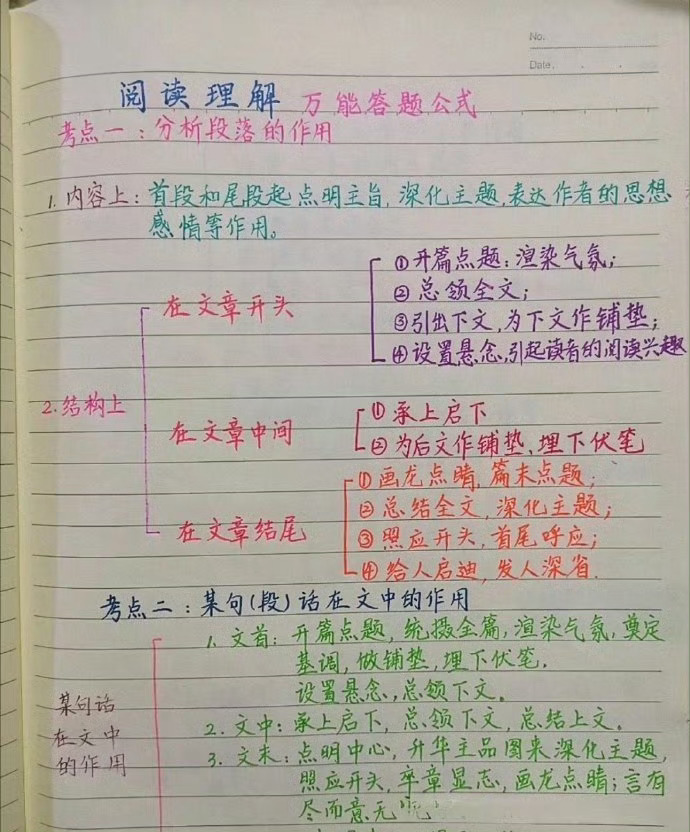 No.
Date.
阅读理解 万能答题公式
考点一：分析段落的作用
1.内容上：首段和尾段起点明主旨,深化主题,表达作者的思想
感情等作用。
2.结构上
在文章开头
①开篇点题；渲染气氛；
②总领全文；
③引出下文,为下文作铺垫；
④设置悬念,引起读者的阅读兴趣
在文章中间
①承上启下
②为后文作铺垫,埋下伏笔
在文章结尾
①画龙点晴,篇末点题；
②总结全文,深化主题；
③照应开头,首尾呼应；
④给人启迪,发人深省.
考点二：某句(段)话在文中的作用
某句话
在文中
的作用
1.文首：开篇点题,统摄全篇,渲染气氛,奠定
基调,做铺垫,埋下伏笔.
设置悬念,总领下文。
2.文中：承上启下,总领下文,总结上文。
3.文末：点明中心,升华主品图来深化主题,
照应开头,卒章显志,画龙点晴；言有
尽而意无